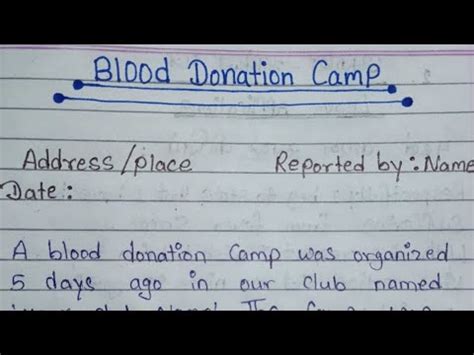 Blood Donation Camp
Address/place Reported by: Name
Date:
A blood donation Camp was organized
5 days ago in our club named